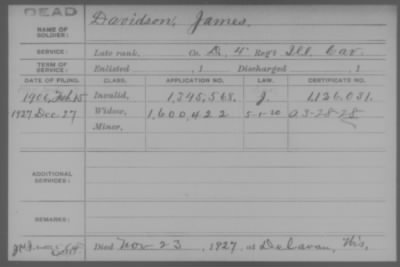 DEAD
NAME OF SOLDIER: Davidson, James.
SERVICE: Late rank, Co. D, 4 Reg't Ill. Cav.
TERM OF SERVICE: Enlisted , 1 Discharged , 1
DATE OF FILING. CLASS. APPLICATION NO. LAW. CERTIFICATE NO.
1906, Feb 15 Invalid, 1,345,568. J. 1,126,031.
1927 Dec. 27 Widow, 1,600,422 5-1-20 a 3-28-28
Minor,
ADDITIONAL SERVICES:
REMARKS:
Died Nov 23, 1927, at Delavan, Wis,